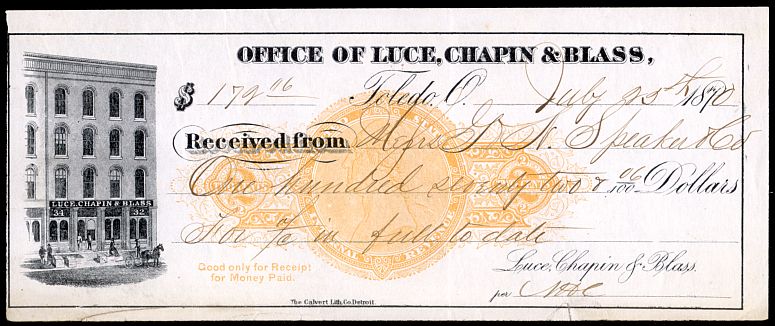 OFFICE OF LUCE, CHAPIN & BLASS,
$ 172 06 Toledo, O. July 25th 1870
Received from Messrs G. N. Speaker & Co
One hundred seventy two & 06/100 Dollars
For a/c in full to date
LUCE, CHAPIN & BLASS
34 32
UNITED STATES
INTERNAL REVENUE
2 2
Good only for Receipt
for Money Paid.
Luce, Chapin & Blass.
per
The Calvert Lith. Co. Detroit.